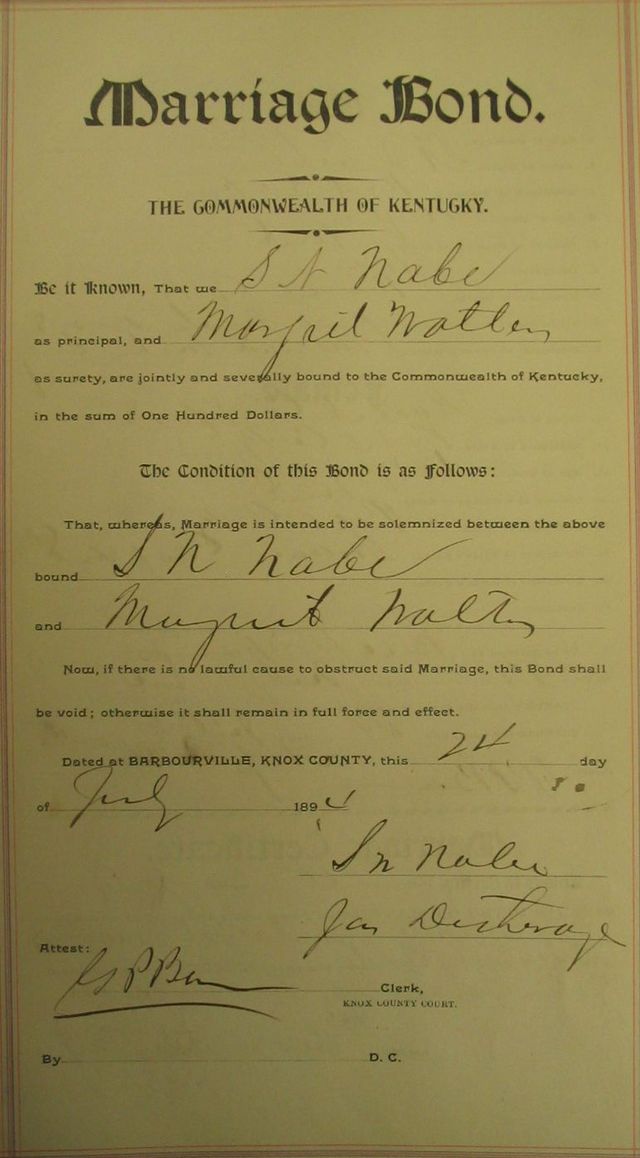 Marriage Bond.
THE COMMONWEALTH OF KENTUCKY.
Be it Known, That we S N Nabe
as principal, and
as surety, are jointly and severally bound to the Commonwealth of Kentucky,
in the sum of One Hundred Dollars.
The Condition of this Bond is as Follows:
That, whereas, Marriage is intended to be solemnized between the above
bound S N Nabe
and
Now, if there is no lawful cause to obstruct said Marriage, this Bond shall
be void; otherwise it shall remain in full force and effect.
Dated at BARBOURVILLE, KNOX COUNTY, this 24 day
of July 1894
S N
Jas
Attest:
Clerk,
KNOX COUNTY COURT.
By D. C.